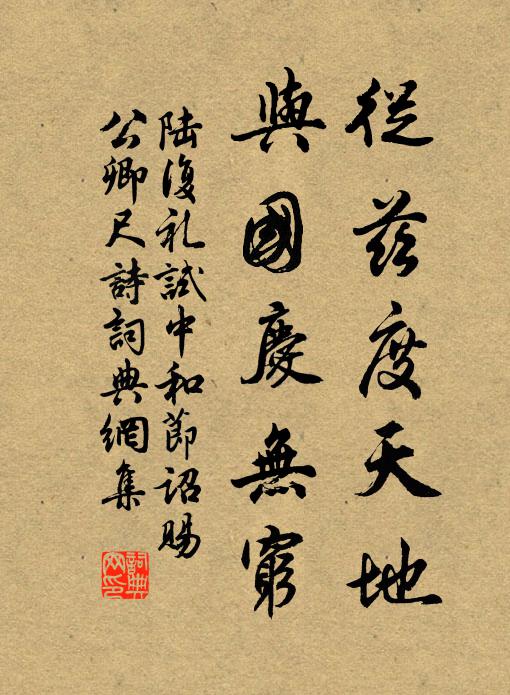 從茲度天地
與國慶無窮
陸復礼試中和節詔賜
公卿尺詩詞典網集
詞典